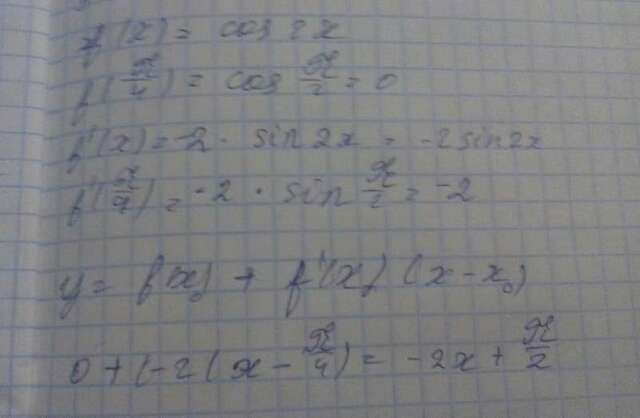 f(x) = cos 2x
f(π/4) = cos π/2 = 0
f'(x) = -2 · sin 2x = -2 sin 2x
f'(π/4) = -2 · sin π/2 = -2
y = f(x₀) + f'(x₀) (x - x₀)
0 + (-2(x - π/4) = -2x + π/2